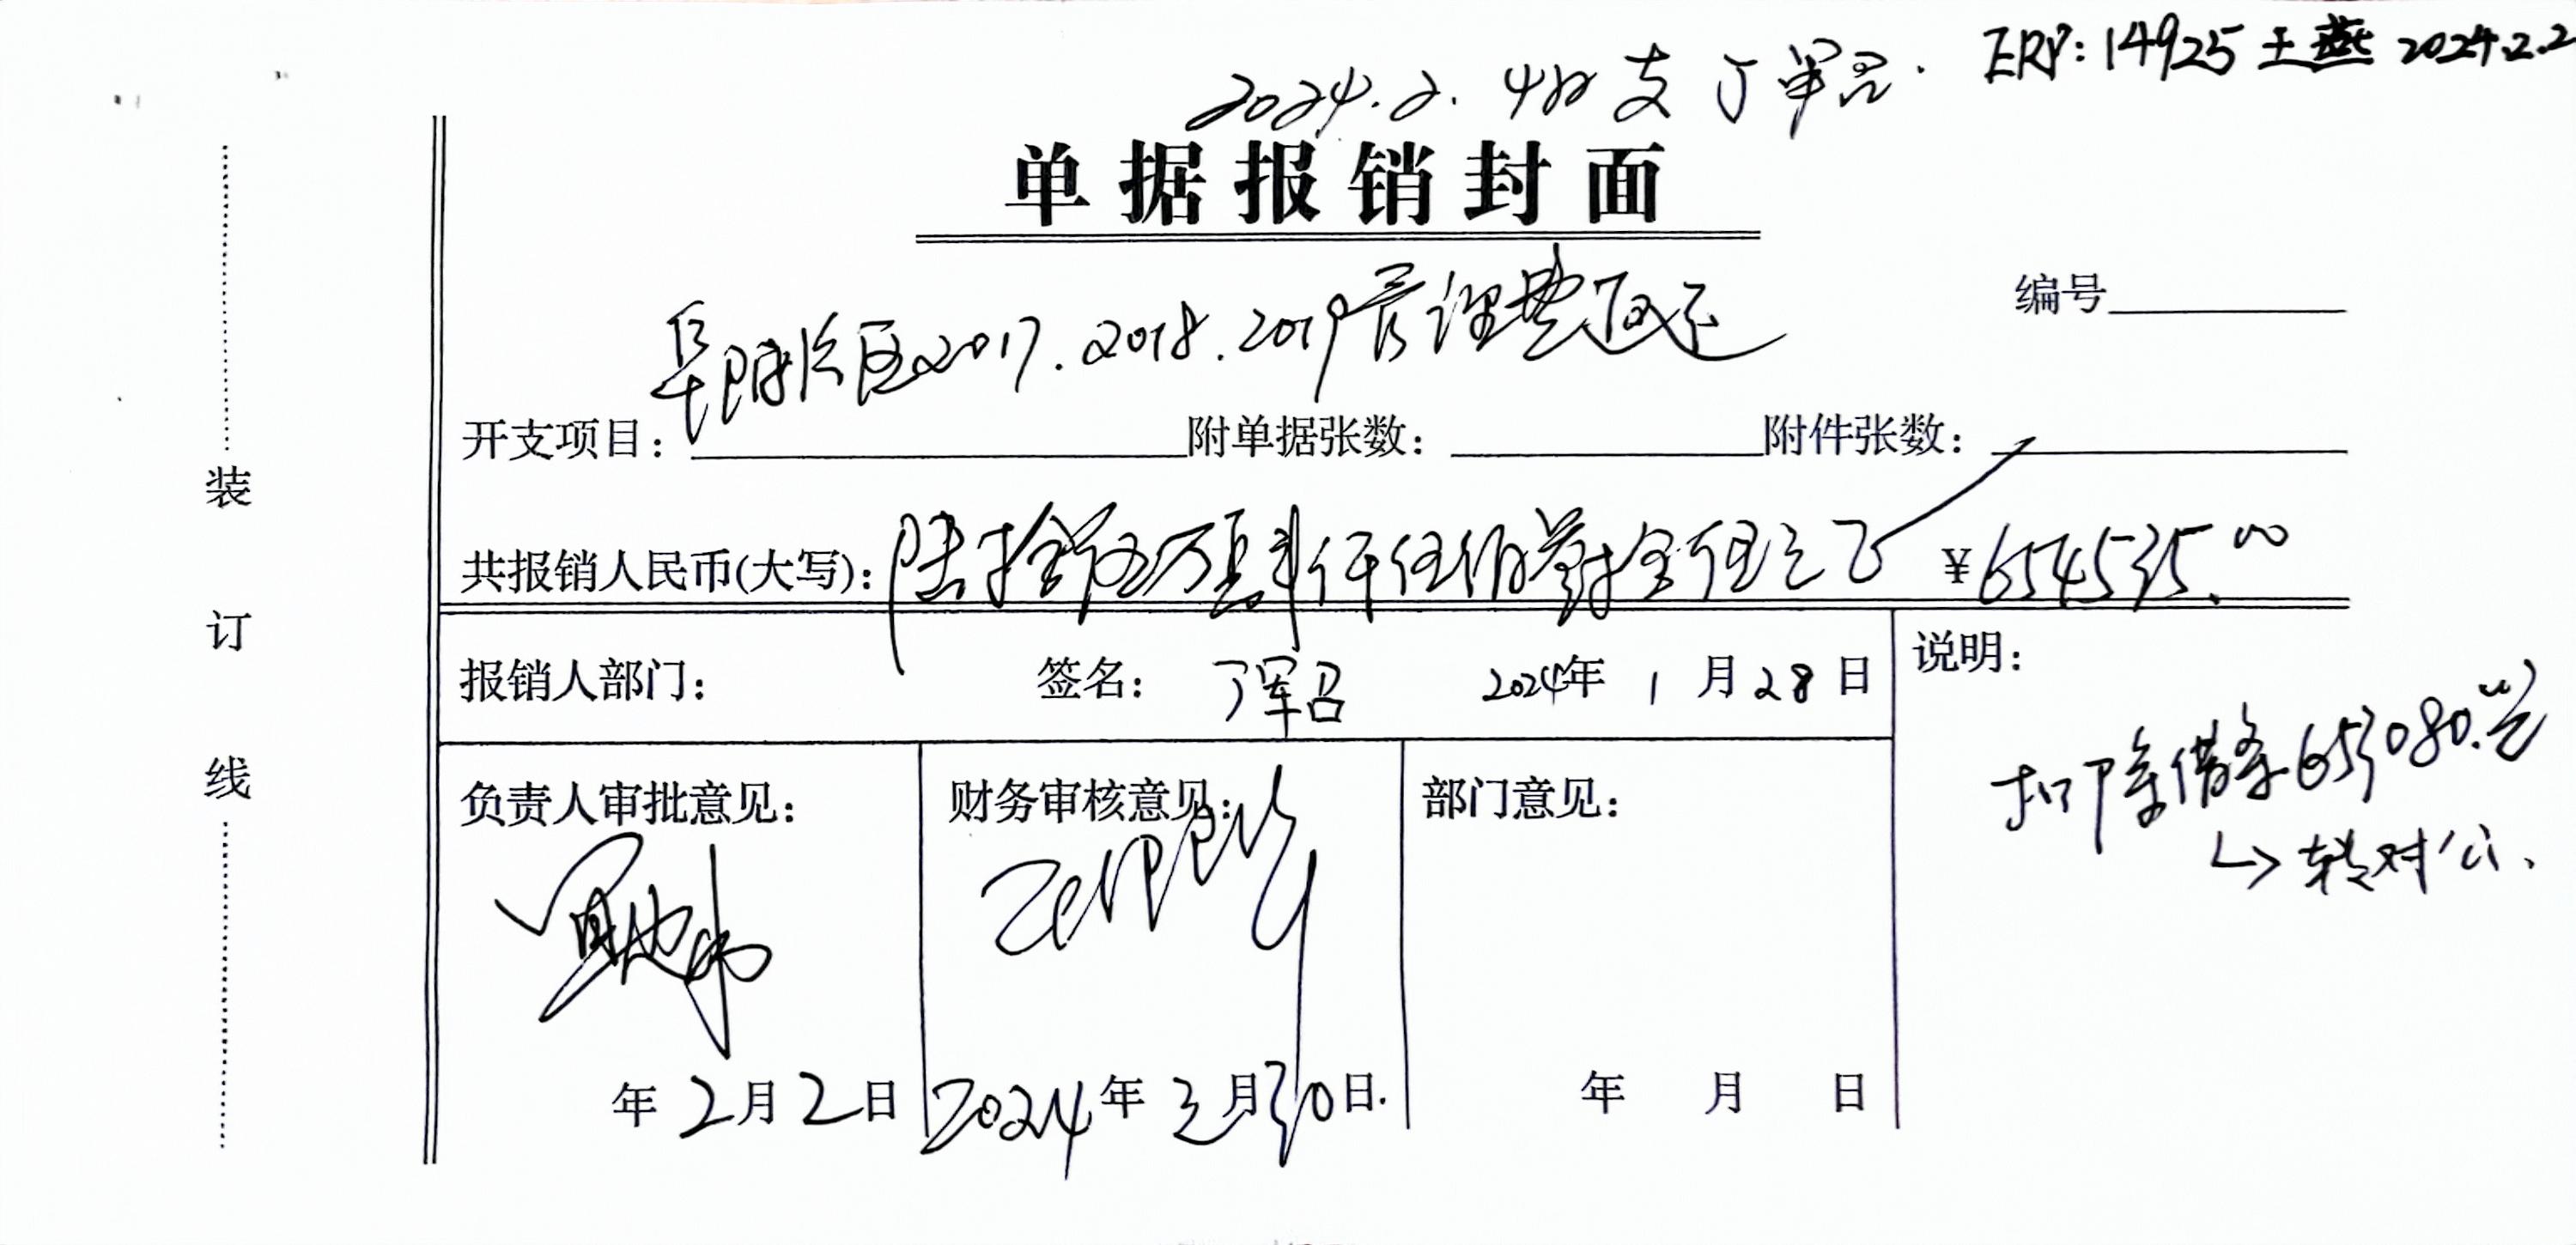 ERP: 14925 王燕 2024.2.2
2024.2. 付 支 丁军召.
单据报销封面
编号
阜阳片区2017.2018.2019管理费返还
开支项目: 附单据张数: 附件张数:
共报销人民币(大写): 陆拾伍万肆仟伍佰叁拾伍元 ¥654535.00
报销人部门: 签名: 丁军召 2024年 1 月 28 日
说明:
扣除借条653080.00元
↳转对公.
负责人审批意见:
年 2 月 2 日
财务审核意见:
2024 年 月 30 日.
部门意见:
年 月 日
装
订
线